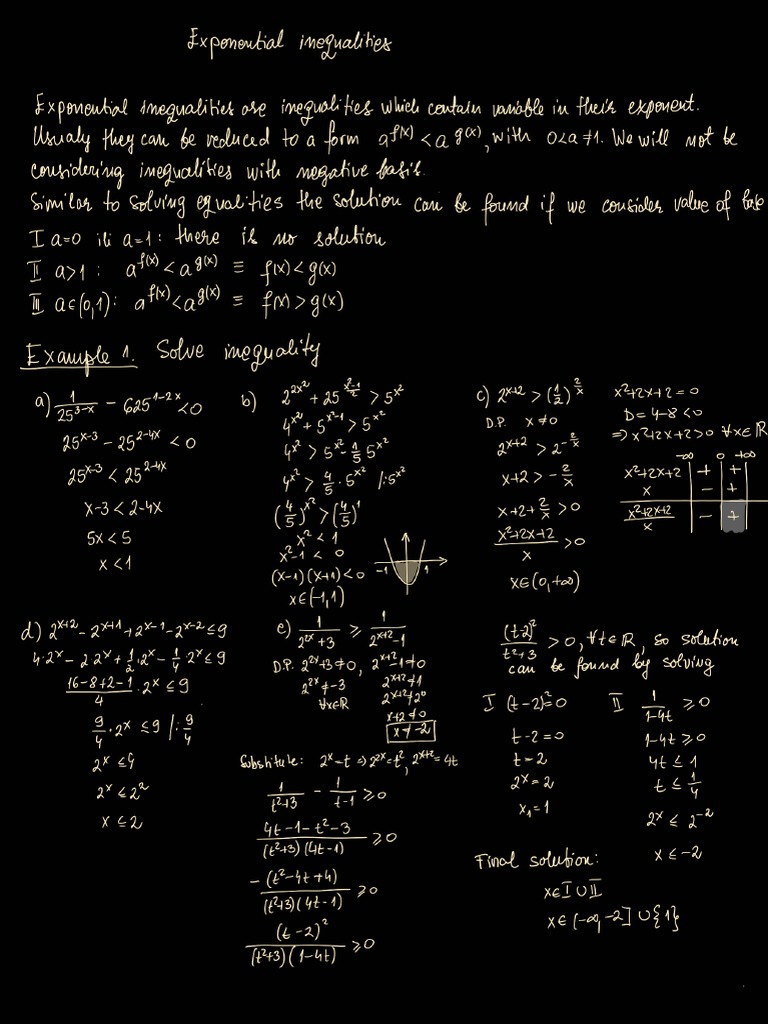 Exponential inequalities
Exponential inequalities are inequalities which contain variable in their exponent.
Usualy they can be reduced to a form a^f(x) < a^g(x), with 0<a≠1. We will not be
considering inequalities with negative basis.
Similar to solving equalities the solution can be found if we consider value of base
I a=0 ili a=1: there is no solution
II a>1: a^f(x) < a^g(x) ≡ f(x)<g(x)
III a∈(0,1): a^f(x) < a^g(x) ≡ f(x)>g(x)
Example 1. Solve inequality
a) 1/25^(3-x) - 625^(1-2x) < 0
25^(x-3) - 25^(2-4x) < 0
25^(x-3) < 25^(2-4x)
x-3 < 2-4x
5x < 5
x < 1
b) 2^(2x²) + 25^((x²-1)/2) > 5^(x²)
4^(x²) + 5^(x²-1) > 5^(x²)
4^(x²) > 5^(x²) - 1/5 5^(x²)
4^(x²) > 4/5 · 5^(x²) /:5^(x²)
(4/5)^(x²) > (4/5)^1
x² < 1
x²-1 < 0
(x-1)(x+1) < 0
x∈(-1,1)
-1 1
c) 2^(x+2) > (1/2)^(2/x)
D.P. x≠0
2^(x+2) > 2^(-2/x)
x+2 > -2/x
x+2+2/x > 0
(x²+2x+2)/x > 0
x∈(0,+∞)
x²+2x+2=0
D=4-8<0
⇒ x²+2x+2>0 ∀x∈ℝ
-∞ 0 +∞
x²+2x+2 + +
x - +
(x²+2x+2)/x - +
d) 2^(x+2) - 2^(x+1) + 2^(x-1) - 2^(x-2) ≤ 9
4·2^x - 2·2^x + 1/2·2^x - 1/4·2^x ≤ 9
(16-8+2-1)/4 · 2^x ≤ 9
9/4 · 2^x ≤ 9 /:9/4
2^x ≤ 4
2^x ≤ 2²
x ≤ 2
e) 1/(2^(2x)+3) ≥ 1/(2^(x+2)-1)
D.P. 2^(2x)+3≠0, 2^(x+2)-1≠0
2^(2x)≠-3 2^(x+2)≠1
∀x∈ℝ 2^(x+2)≠2^0
x+2≠0
x≠-2
Substitute: 2^x=t ⇒ 2^(2x)=t², 2^(x+2)=4t
1/(t²+3) - 1/(t-1) ≥ 0
(4t-1-t²-3)/((t²+3)(4t-1)) ≥ 0
-(t²-4t+4)/((t²+3)(4t-1)) ≥ 0
(t-2)²/((t²+3)(1-4t)) ≥ 0
(t-2)²/(t²+3) > 0, ∀t∈ℝ, so solution
can be found by solving
I (t-2)²=0
t-2=0
t=2
2^x=2
x₁=1
II 1/(1-4t) ≥ 0
1-4t ≥ 0
4t ≤ 1
t ≤ 1/4
2^x ≤ 2^(-2)
x ≤ -2
Final solution:
x∈ I ∪ II
x∈(-∞,-2] ∪ {1}